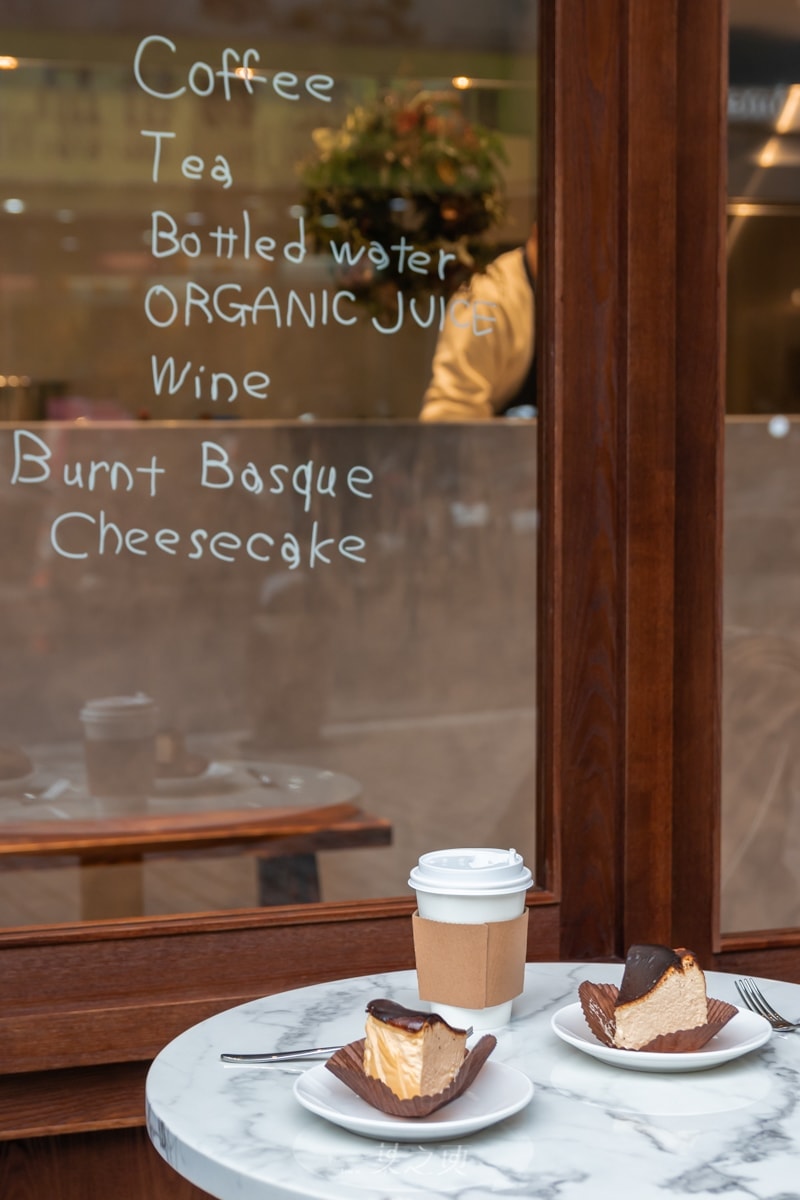 Coffee
Tea
Bottled water
ORGANIC JUICE
Wine
Burnt Basque
Cheesecake